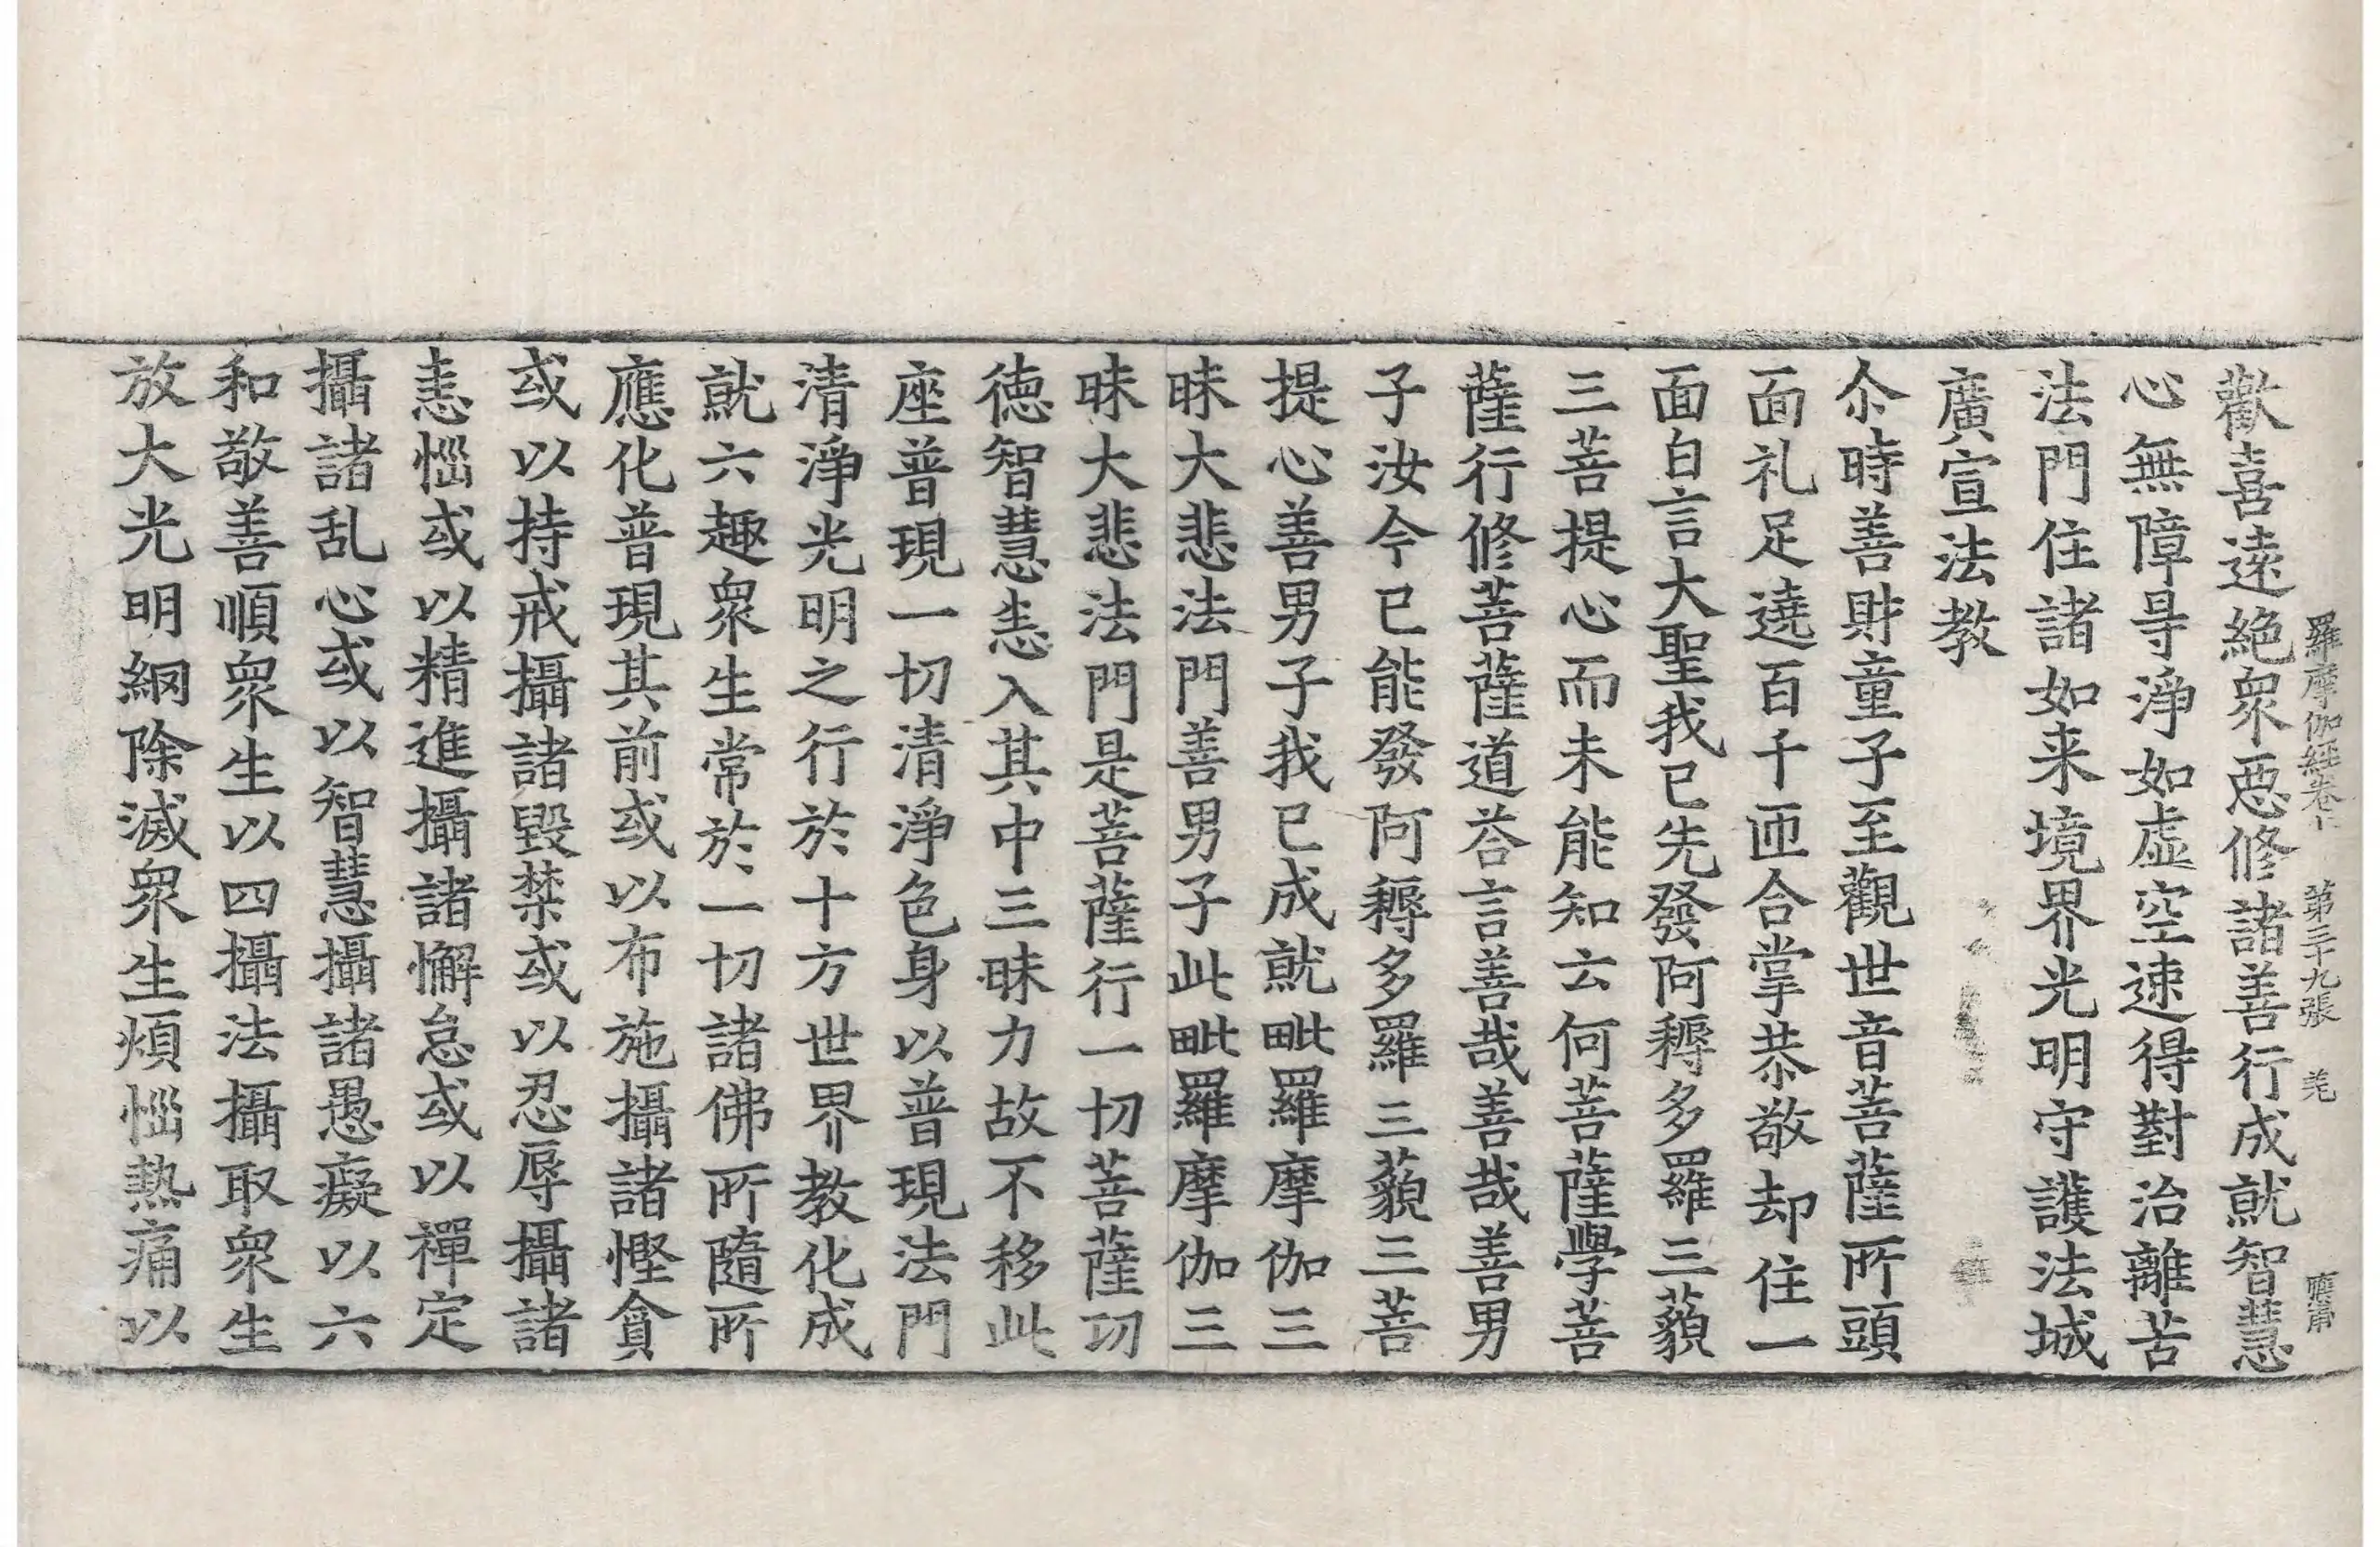 羅摩伽經卷上 第二十九張 羌
歡喜遠絕衆惡修諸善行成就智慧
心無障㝵淨如虛空速得對治離苦
法門住諸如来境界光明守護法城
廣宣法教
尒時善財童子至觀世音菩薩所頭
面礼足遶百千匝合掌恭敬却住一
面白言大聖我已先發阿耨多羅三藐
三菩提心而未能知云何菩薩學菩
薩行修菩薩道荅言善哉善哉善男
子汝今已能發阿耨多羅三藐三菩
提心善男子我已成就毗羅摩伽三
昧大悲法門善男子此毗羅摩伽三
昧大悲法門是菩薩行一切菩薩功
德智慧恚入其中三昧力故不移此
座普現一切清淨色身以普現法門
清淨光明之行於十方世界教化成
就六趣衆生常於一切諸佛所隨所
應化普現其前或以布施攝諸慳貪
或以持戒攝諸毀禁或以忍辱攝諸
恚惱或以精進攝諸懈怠或以禪定
攝諸乱心或以智慧攝諸愚癡以六
和敬善順衆生以四攝法攝取衆生
放大光明網除滅衆生煩惱熱痛以